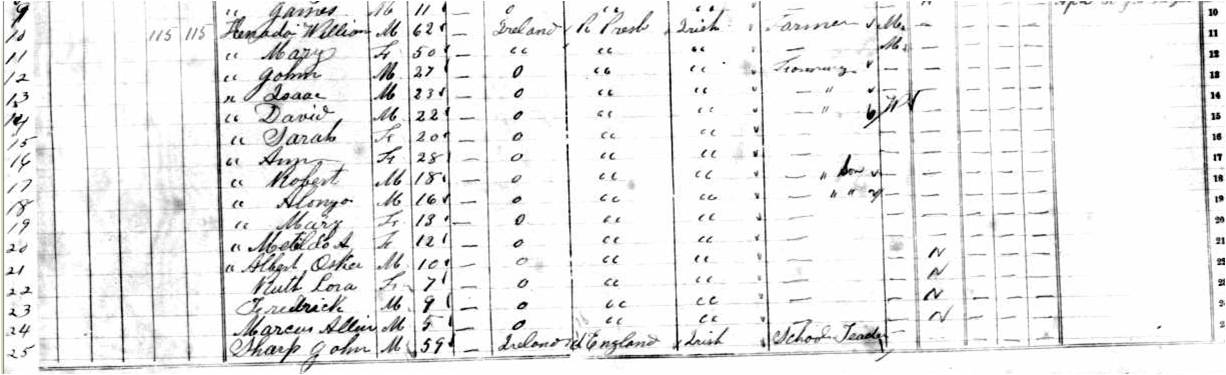 9 " James M 11 — 0 " " 10
10 115 115 William M 62 — Ireland R Presb Irish Farmer M. 11
11 " Mary F 50 — " " " — M. 12
12 " John M 27 — 0 " " Farming — — — — — — 13
13 " Isaac M 23 — 0 " " — " — — — — — — 14
14 " David M 22 — 0 " " — " — — — — — 15
15 " Sarah F 20 — 0 " " — — — — — — — 16
16 " Ann F 28 — 0 " " — — — — — — — 17
17 " Robert M 18 — 0 " " — " Son — — — — — — 18
18 " Alonzo M 16 — 0 " " — " " — — — — — — 19
19 " Mary F 13 — 0 " " — — — — — — — 20
20 " Metilda A F 12 — 0 " " — — — — — — — 21
21 " Albert Osker M 10 — 0 " " — — N — — — — 22
22 Ruth Lora F 7 — 0 " " — — N — — — —
23 Fredrick M 9 — 0 " " — — N — — — —
24 Marcus Allin M 5 — 0 " " — — N — — — —
25 Sharp John M 59 — Ireland England Irish School Teacher — — — — — —